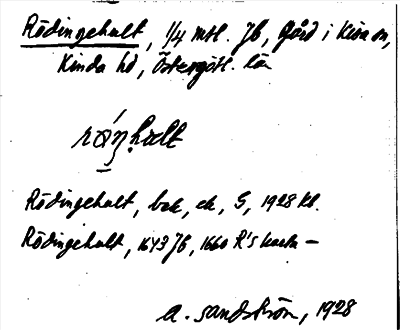 Rödingehult, 1/4 mtl. Jb, Gård i Kisa sn,
Kinda hd, Östergötl. län
Rödingehult, bek, ek, S, 1928 kl.
Rödingehult, 1643 Jb, 1660 R's karta –
A. Sandström, 1928